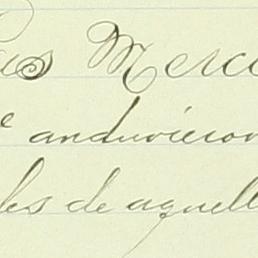 as Merce
e anduvieron
les de aquell